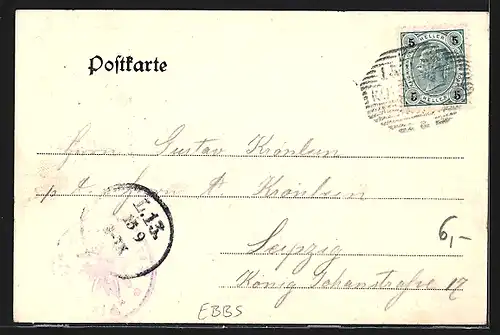 Postkarte
5 HELLER 5
5 HELLER 5
Herrn Gustav Kronlein
Herrn A. Kronlein
L.13.
13 9
Leipzig
6,-
König Johannstraße 17
EBBS